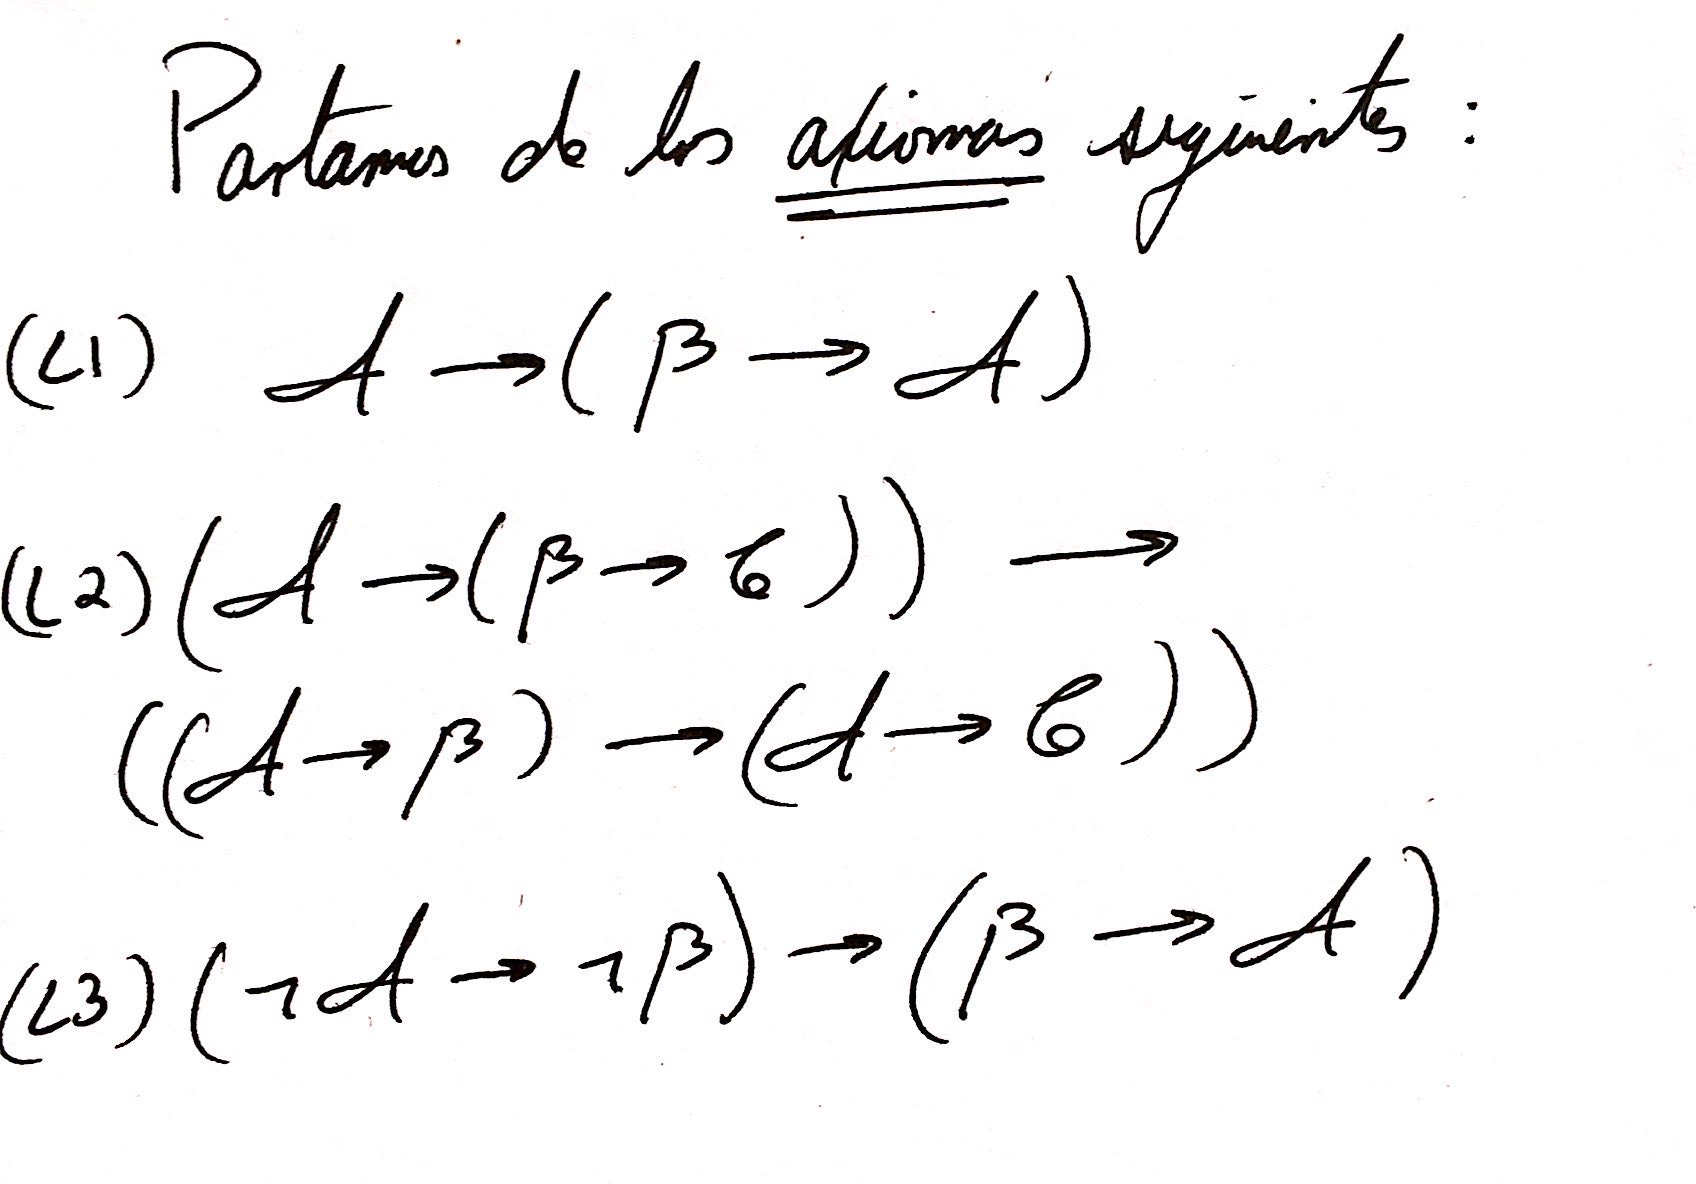 Partamos de los axiomas siguientes:
(L1) A → (β → A)
(L2) (A → (β → C)) →
((A → β) → (A → C))
(L3) (¬A → ¬β) → (β → A)